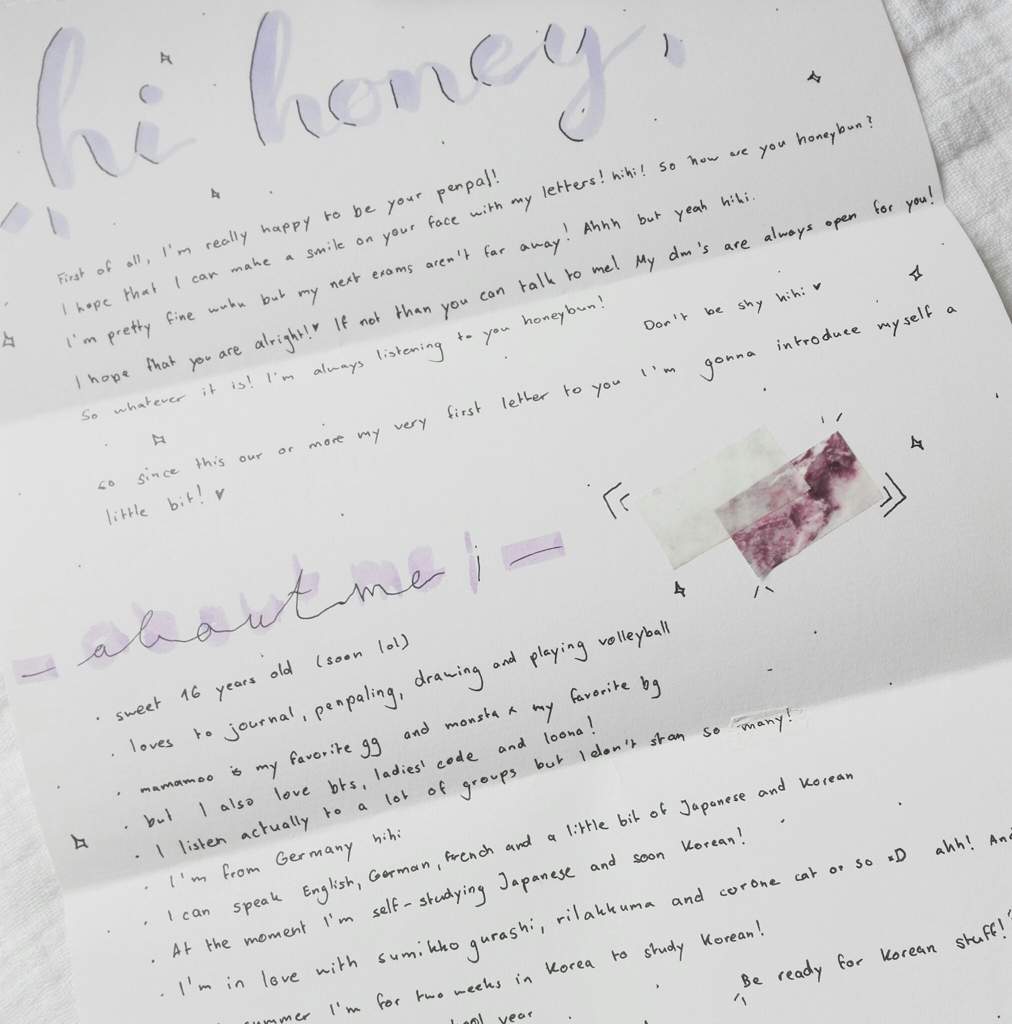 hi honey,
First of all, I'm really happy to be your penpal!
I hope that I can make a smile on your face with my letters! hihi! So how are you honeybun?
I'm pretty fine wuhu but my next exams aren't far away! Ahhh but yeah hihi.
I hope that you are alright!♥ If not than you can talk to me! My dm's are always open for you!
So whatever it is! I'm always listening to you honeybun!
Don't be shy hihi ♥
so since this our or more my very first letter to you I'm gonna introduce myself a
little bit! ♥
- about me ; -
· sweet 16 years old (soon lol)
· loves to journal, penpaling, drawing and playing volleyball
· mamamoo is my favorite gg and monsta x my favorite bg
· but I also love bts, ladies' code and loona!
· I listen actually to a lot of groups but I don't stan so many!
· I'm from Germany hihi
· I can speak English, German, French and a little bit of Japanese and Korean
· At the moment I'm self-studying Japanese and soon Korean!
· I'm in love with sumikko gurashi, rilakkuma and corone cat or so xD ahh! And
summer I'm for two weeks in Korea to study Korean!
Be ready for Korean stuff!
year